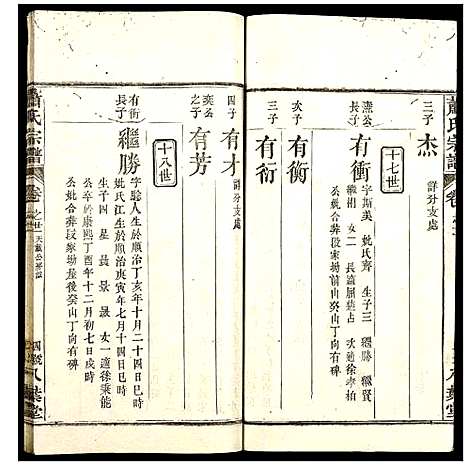 蕭氏宗譜
三子
杰
詳分支處
十七世
濂公長子
有衝
字斯美 妣氏齊 生子三 繼勝 繼賢
繼湘 女二 長適屈葉占 次適徐孝柏
公妣合葬段家坳屋後癸山丁向有碑
次子
有衡
三子
有衍
四子
有才
詳分支處
奕公之子
有芳
十八世
有衝長子
繼勝
字駿人生於順治丁亥年十月二十四日巳時
妣氏江生於順治庚寅年七月十四日巳時
生子四 星 景 女一適徐秉能
公卒於康熙丁酉年十二月初七日戌時
公妣合葬段家坳屋後癸山丁向有碑
蕭氏宗譜
卷之廿
四號 八葉堂
八葉堂